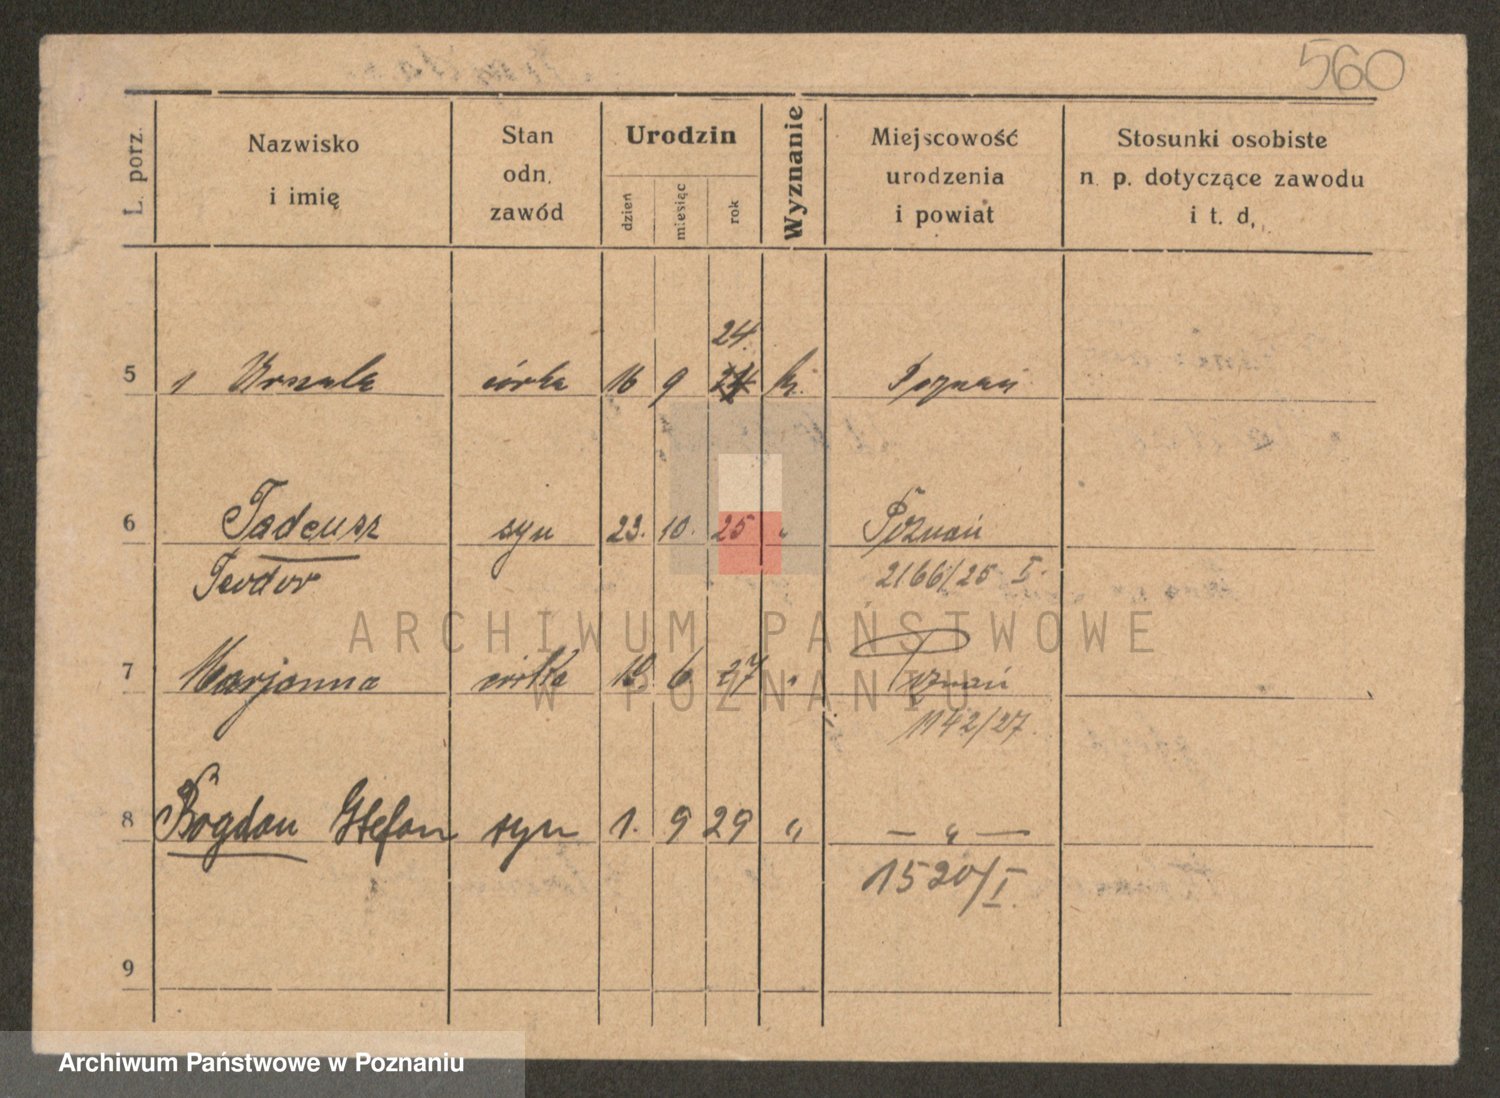 560
L. porz.
Nazwisko
i imię
Stan
odn.
zawód
Urodzin
dzień
miesiąc
rok
Wyznanie
Miejscowość
urodzenia
i powiat
Stosunki osobiste
n. p. dotyczące zawodu
i t. d.
24.
5 Urszula córka 16 9 24 k. Poznań
6 Tadeusz syn 23. 10. 25 " Poznań
Teodor 2166/25 I.
7 Marjanna córka 18. 6. 27 " Poznań
1142/27.
8 Bogdan Stefan syn 1. 9 29 " — " —
1520/I.
9
ARCHIWUM PAŃSTWOWE
W POZNANIU
Archiwum Państwowe w Poznaniu